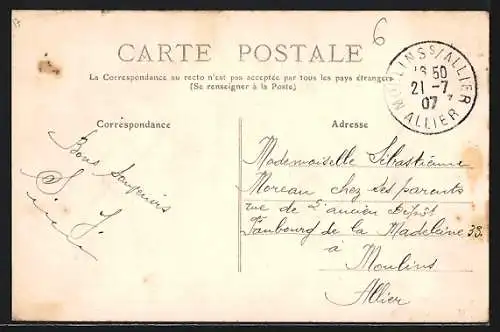 6
CARTE POSTALE
La Correspondance au recto n'est pas acceptée par tous les pays étrangers
(Se renseigner à la Poste)
MOULINS S/ALLIER
16 50
21 -7
07
ALLIER
Correspondance
Adresse
Bons souvenirs
S. J.
Mademoiselle Sébastienne
Moreau chez ses parents
rue de l'ancien Dépôt
Faubourg de la Madeleine 33
à
Moulins
Allier